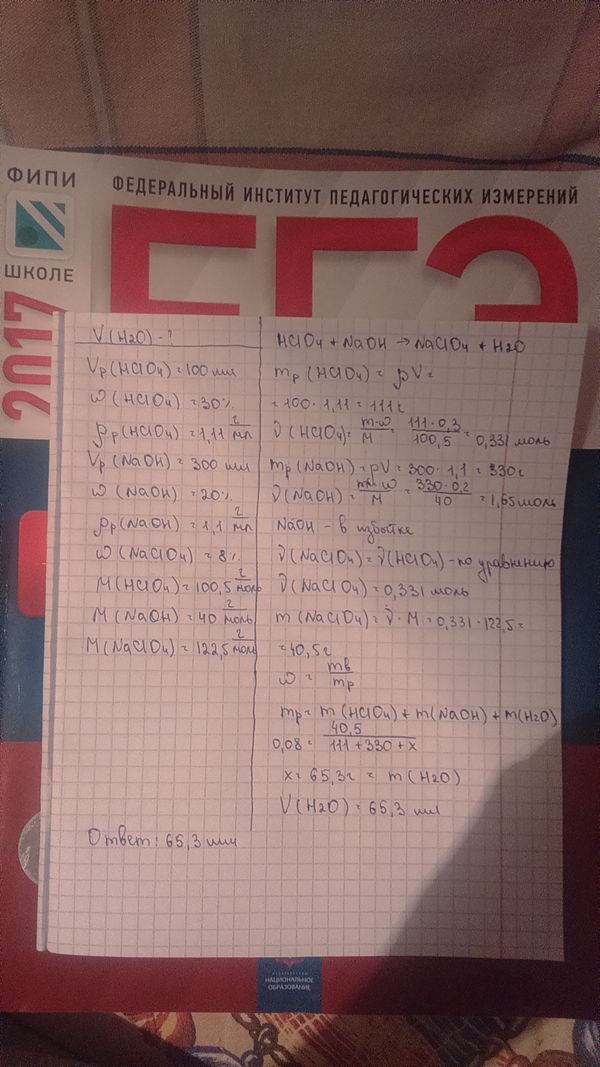 ФИПИ
ШКОЛЕ
ФЕДЕРАЛЬНЫЙ ИНСТИТУТ ПЕДАГОГИЧЕСКИХ ИЗМЕРЕНИЙ
ЕГЭ
2017
V(H2O) - ?
Vр(HClO4) = 100 мл
ω(HClO4) = 30%
ρр(HClO4) = 1,11 г/мл
Vр(NaOH) = 300 мл
ω(NaOH) = 20%
ρр(NaOH) = 1,1 г/мл
ω(NaClO4) = 8%
M(HClO4) = 100,5 г/моль
M(NaOH) = 40 г/моль
M(NaClO4) = 122,5 г/моль
HClO4 + NaOH → NaClO4 + H2O
mр(HClO4) = ρV =
= 100 · 1,11 = 111 г
ν(HClO4) = m·ω/M = 111·0,3/100,5 = 0,331 моль
mр(NaOH) = ρV = 300 · 1,1 = 330 г
ν(NaOH) = m·ω/M = 330·0,2/40 = 1,65 моль
NaOH - в избытке
ν(NaClO4) = ν(HClO4) - по уравнению
ν(NaClO4) = 0,331 моль
m(NaClO4) = ν · M = 0,331 · 122,5 =
= 40,5 г
ω = mв/mр
mр = m(HClO4) + m(NaOH) + m(H2O)
0,08 = 40,5/111 + 330 + x
x = 65,3 г = m(H2O)
V(H2O) = 65,3 мл
Ответ: 65,3 мл
НАЦИОНАЛЬНОЕ
ОБРАЗОВАНИЕ